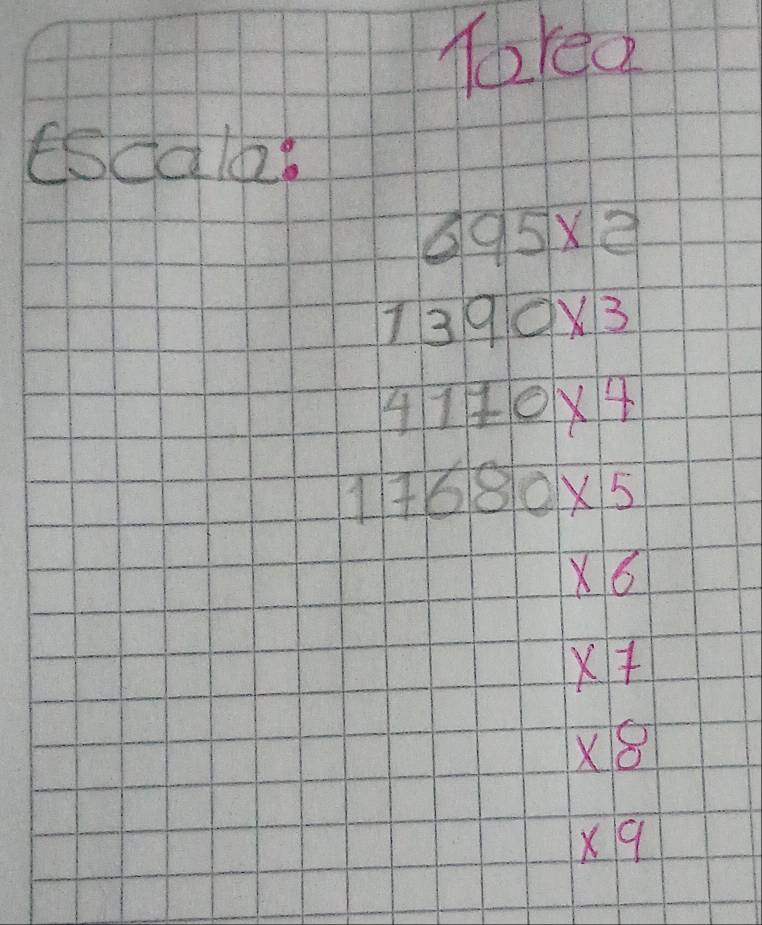 Tarea
Escala:
695x2
1390x3
4170x4
17680x5
x6
x7
x8
x9